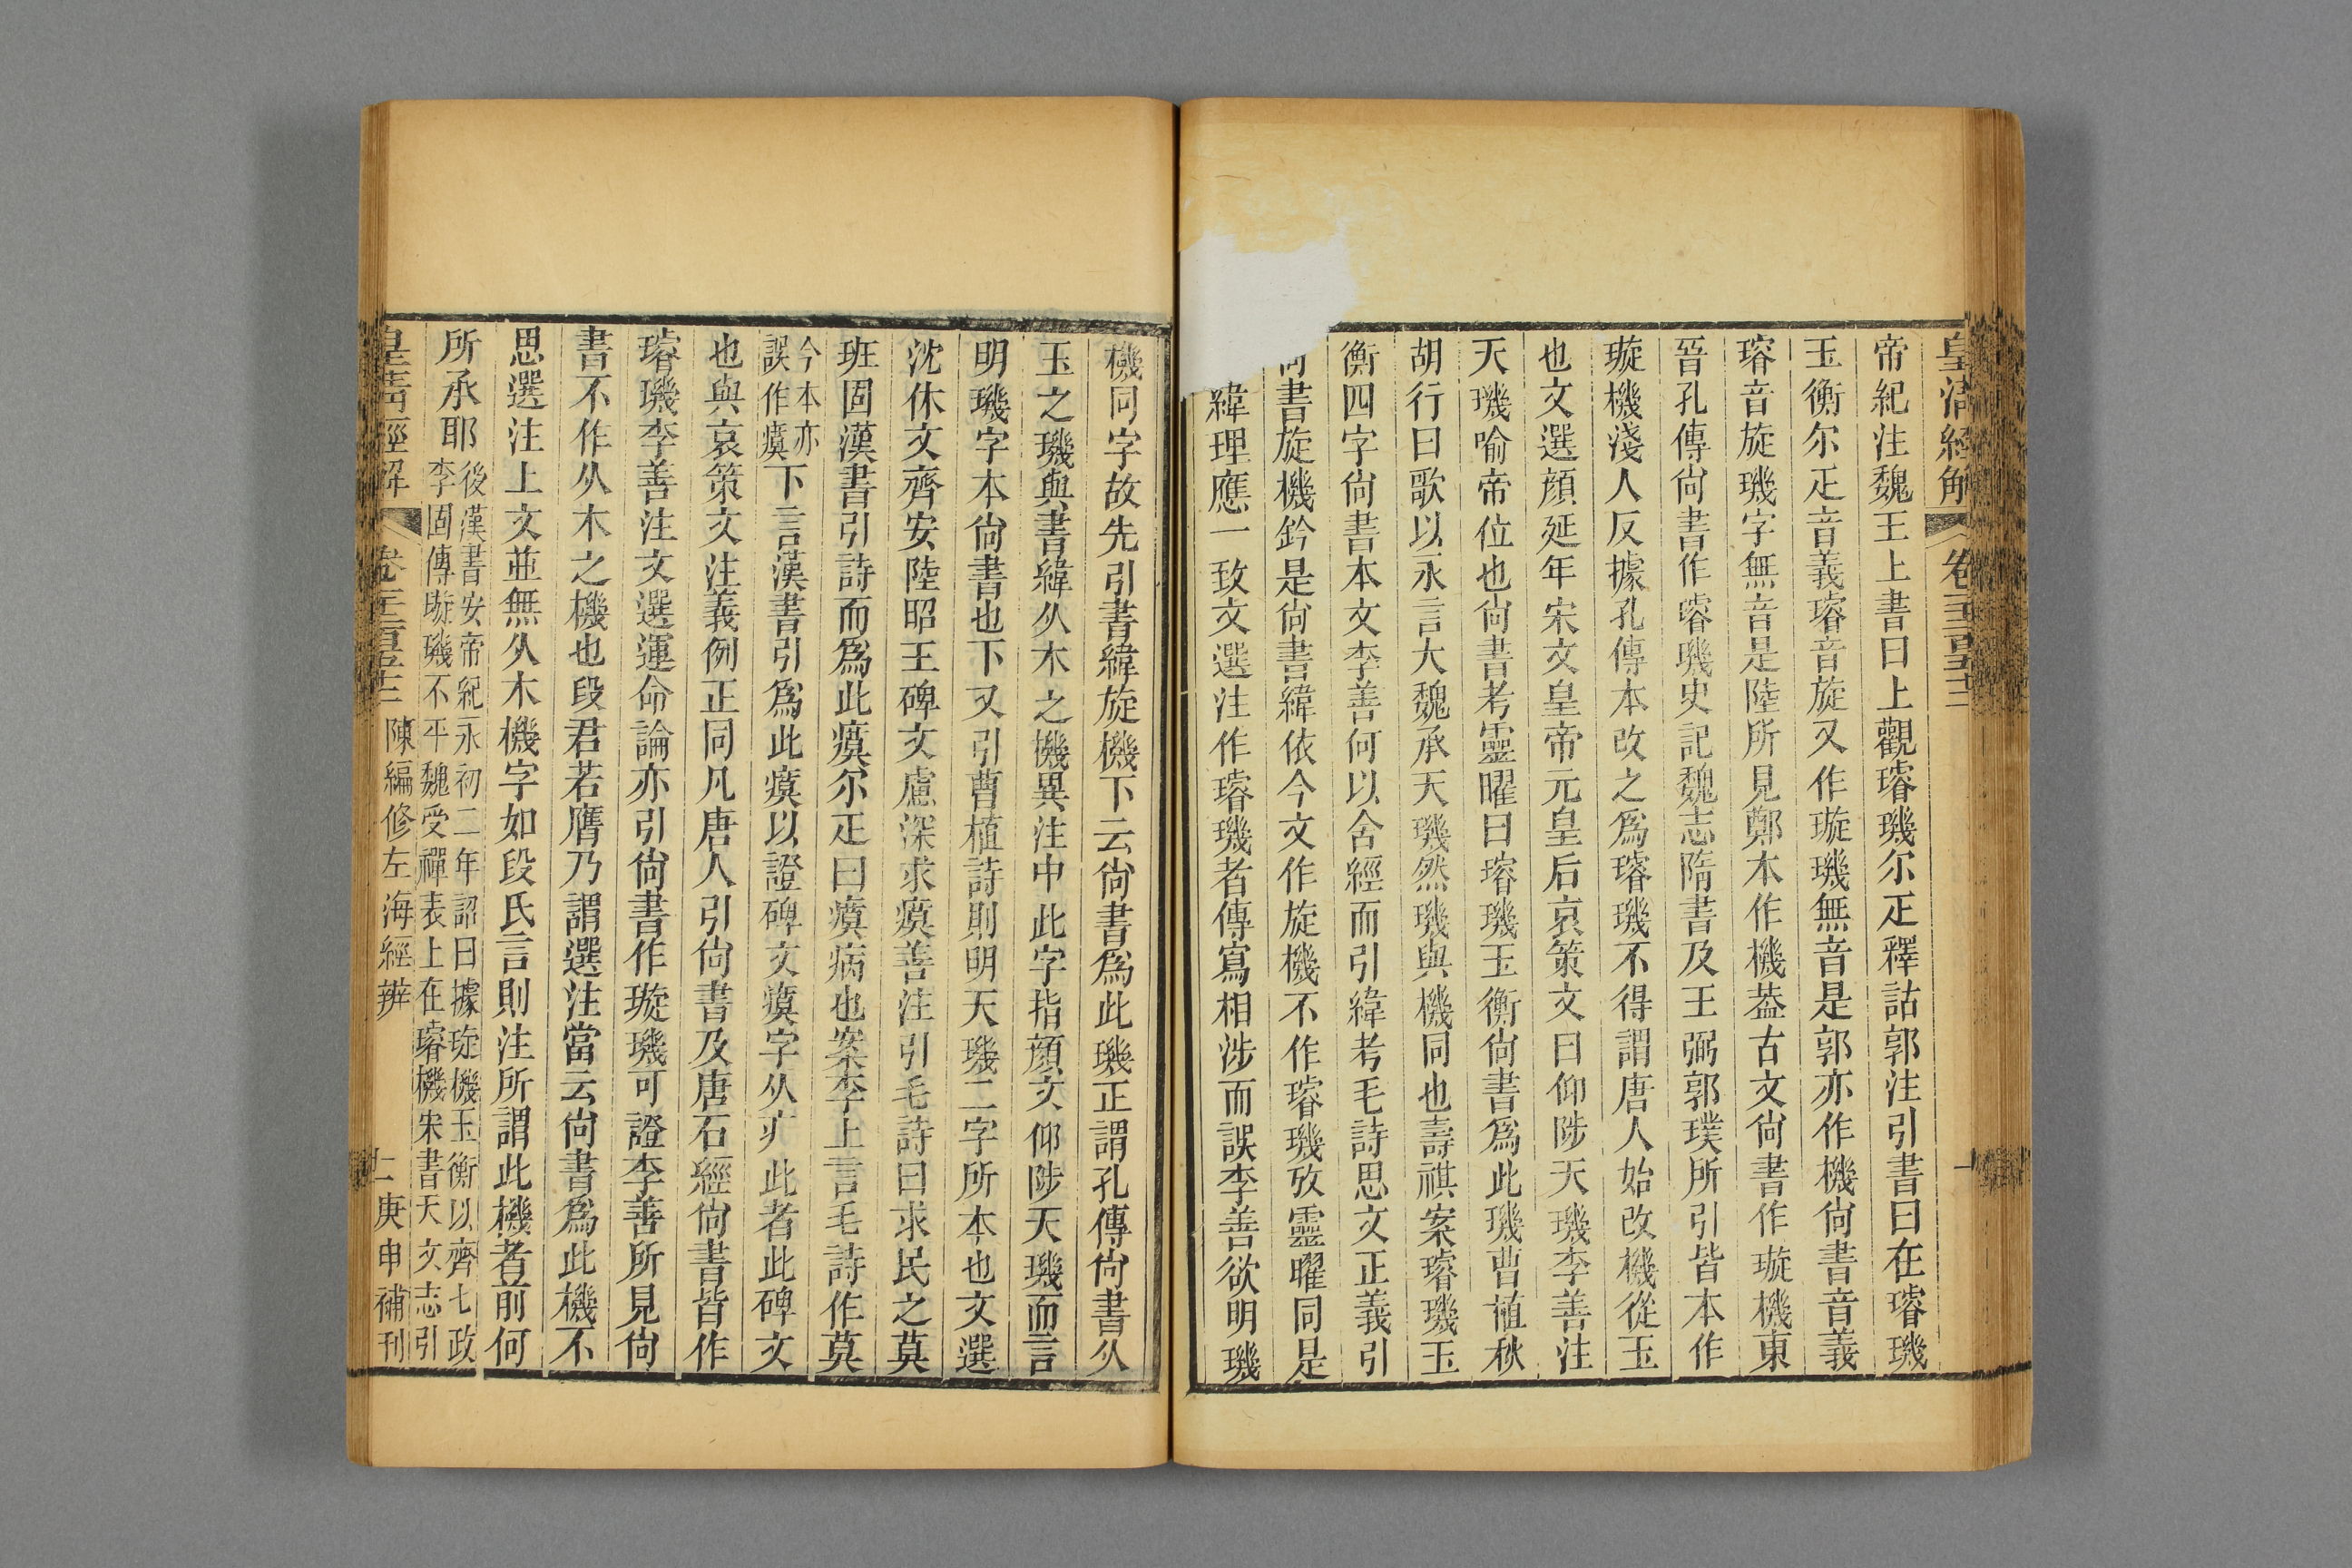 皇清經解
卷千二百五十二
一
帝紀注魏王上書曰上觀璿璣尔疋釋詁郭注引書曰在璿璣
玉衡尔疋音義璿音旋又作璇璣無音是郭亦作機尙書音義
璿音旋璣字無音是陸所見鄭木作機葢古文尙書作璇機東
晉孔傳尙書作璿璣史記魏志隋書及王弼郭璞所引皆本作
璇機淺人反據孔傳本改之爲璿璣不得謂唐人始改機從玉
也文選顔延年宋文皇帝元皇后哀策文曰仰陟天璣李善注
天璣喻帝位也尙書考靈曜曰璿璣玉衡尙書爲此璣曹植秋
胡行曰歌以永言大魏承天璣然璣與機同也壽祺案璿璣玉
衡四字尙書本文李善何以舍經而引緯考毛詩思文正義引
尙書旋機鈐是尙書緯依今文作旋機不作璿璣攷靈曜同是
緯理應一致文選注作璿璣者傳寫相涉而誤李善欲明璣
機同字故先引書緯旋機下云尙書爲此璣正謂孔傳尙書从
玉之璣與書緯从木之機異注中此字指顔文仰陟天璣而言
明璣字本尙書也下又引曹植詩則明天璣二字所本也文選
沈休文齊安陸昭王碑文慮深求瘼善注引毛詩曰求民之莫
班固漢書引詩而爲此瘼尔疋曰瘼病也案李上言毛詩作莫
今本亦
誤作瘼
下言漢書引爲此瘼以證碑文瘼字从疒此者此碑文
也與哀策文注義例正同凡唐人引尙書及唐石經尙書皆作
璿璣李善注文選運命論亦引尙書作璇璣可證李善所見尙
書不作从木之機也段君若膺乃謂選注當云尙書爲此機不
思選注上文並無从木機字如段氏言則注所謂此機者前何
所承耶
後漢書安帝紀永初二年詔曰據琁機玉衡以齊七政
李固傳璇璣不平魏受禪表上在璿機宋書天文志引
皇清經解
卷千二百五十二
陳編修左海經辨
二
庚申補刊